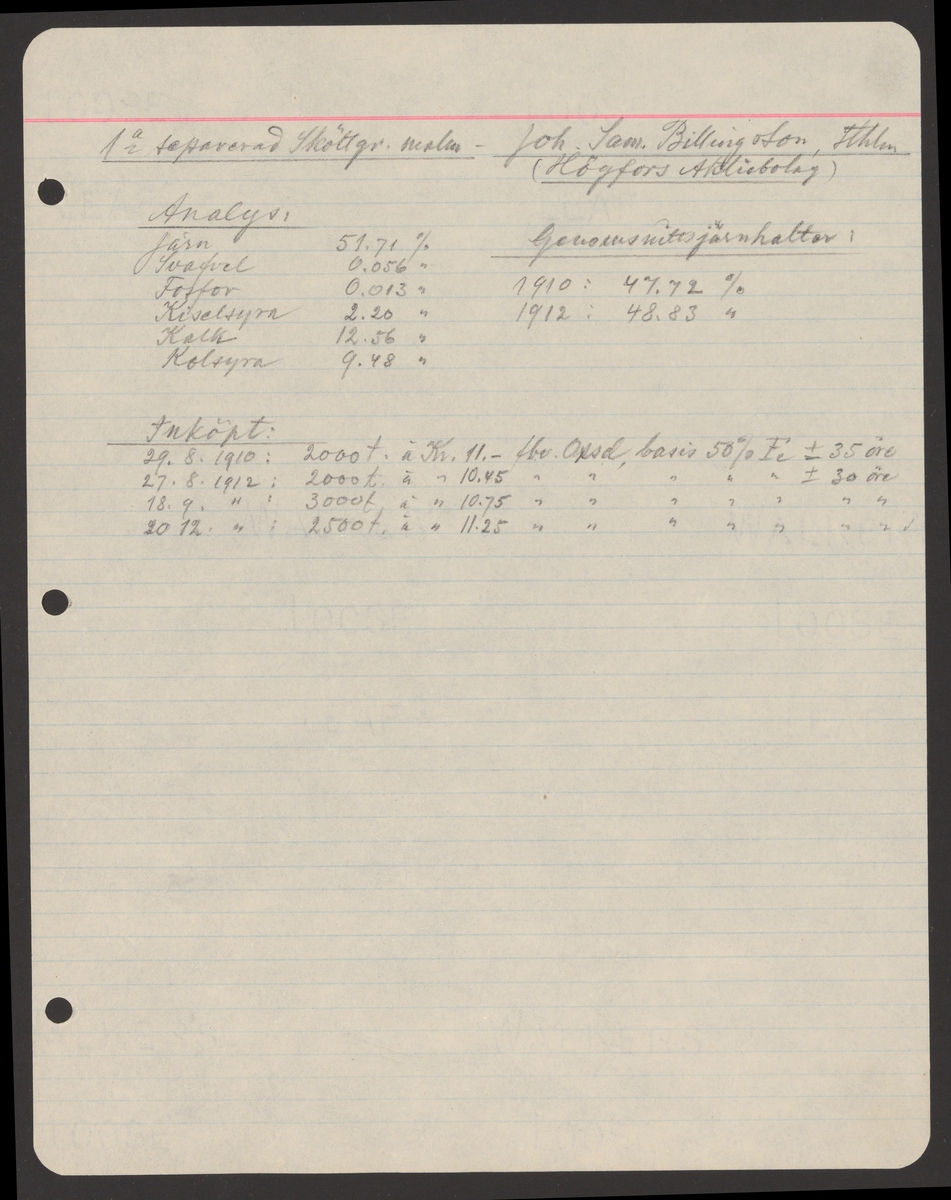 1a separerad Sköttgr. malm - Joh. Sam. Billingsson, Sthlm
(Högfors Aktiebolag)
Analys:
Järn 51.71 %
Svafvel 0.056 "
Fosfor 0.013 "
Kiselsyra 2.20 "
Kalk 12.56 "
Kolsyra 9.48 "
Genomsnittsjärnhalter:
1910: 47.72 %
1912: 48.83 "
Inköpt:
29. 8. 1910: 2000 t. à Kr. 11.- fbv. Oxsd, basis 50% Fe ± 35 öre
27. 8. 1912: 2000 t. à " 10.45 " " " " " ± 30 öre
18. 9. " : 3000 t. à " 10.75 " " " " " " "
20 12. " : 2500 t. à " 11.25 " " " " " " "